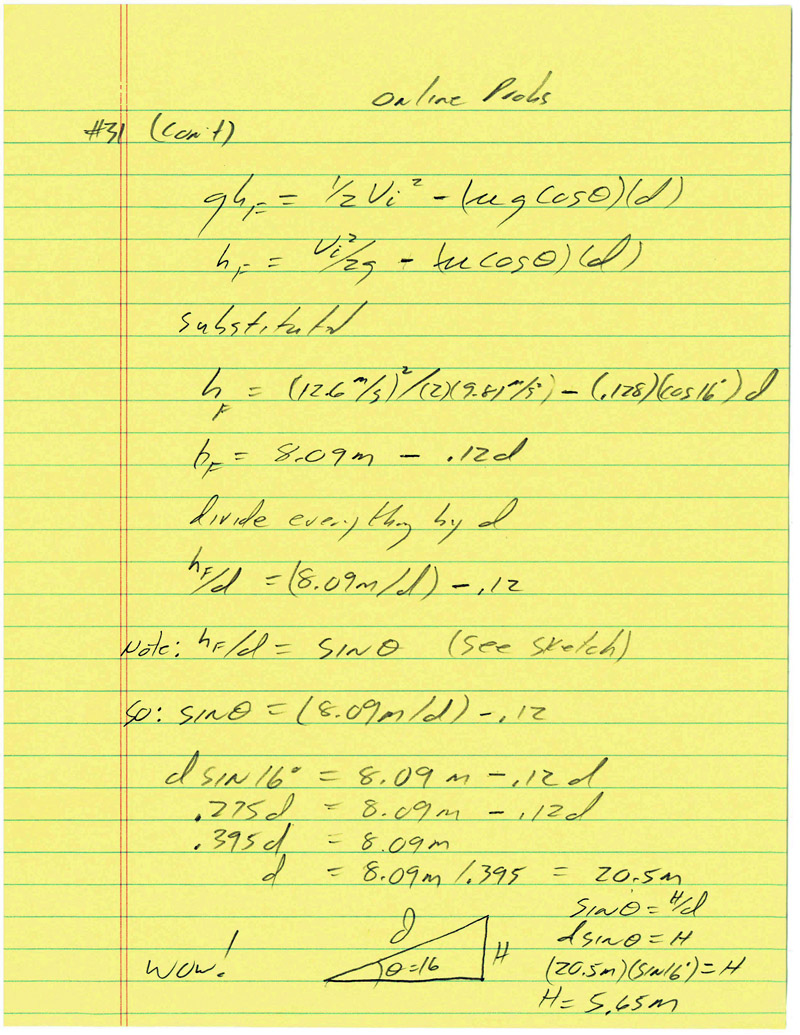 Online Probs
#31 (con't)
ghF = 1/2 Vi² - (μg cosθ)(d)
hF = Vi²/2g - (μ cosθ)(d)
substitute
hF = (12.6 m/s)²/(2)(9.81 m/s²) - (.128)(cos16°)d
hF = 8.09m - .12d
divide everything by d
hF/d = (8.09m/d) - .12
Note: hF/d = SINθ (see sketch)
SO: SINθ = (8.09m/d) - .12
d SIN16° = 8.09m - .12d
.275d = 8.09m - .12d
.395d = 8.09m
d = 8.09m/.395 = 20.5m
SINθ = H/d
dSINθ = H
(20.5m)(SIN16°) = H
H = 5.65m
WOW!
d
θ=16
H